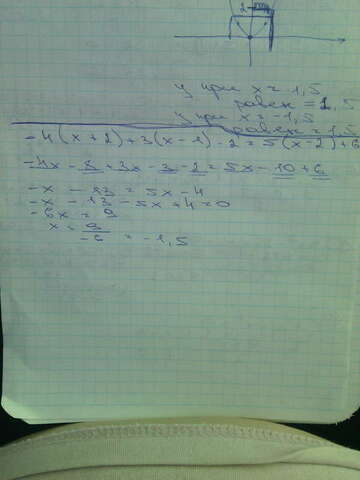 2
у при x = 1,5
равен = 1,5
у при x = -1,5
равен = 1,5
-4(x+2)+3(x-1)-2=5(x-2)+6
-4x-8+3x-3-2=5x-10+6
-x-13=5x-4
-x-13-5x+4=0
-6x=9
x=9/-6=-1,5